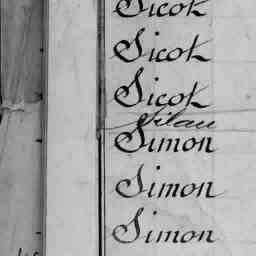 Sicot
Sicot
Sicot
Silau
Simon
Simon
Simon